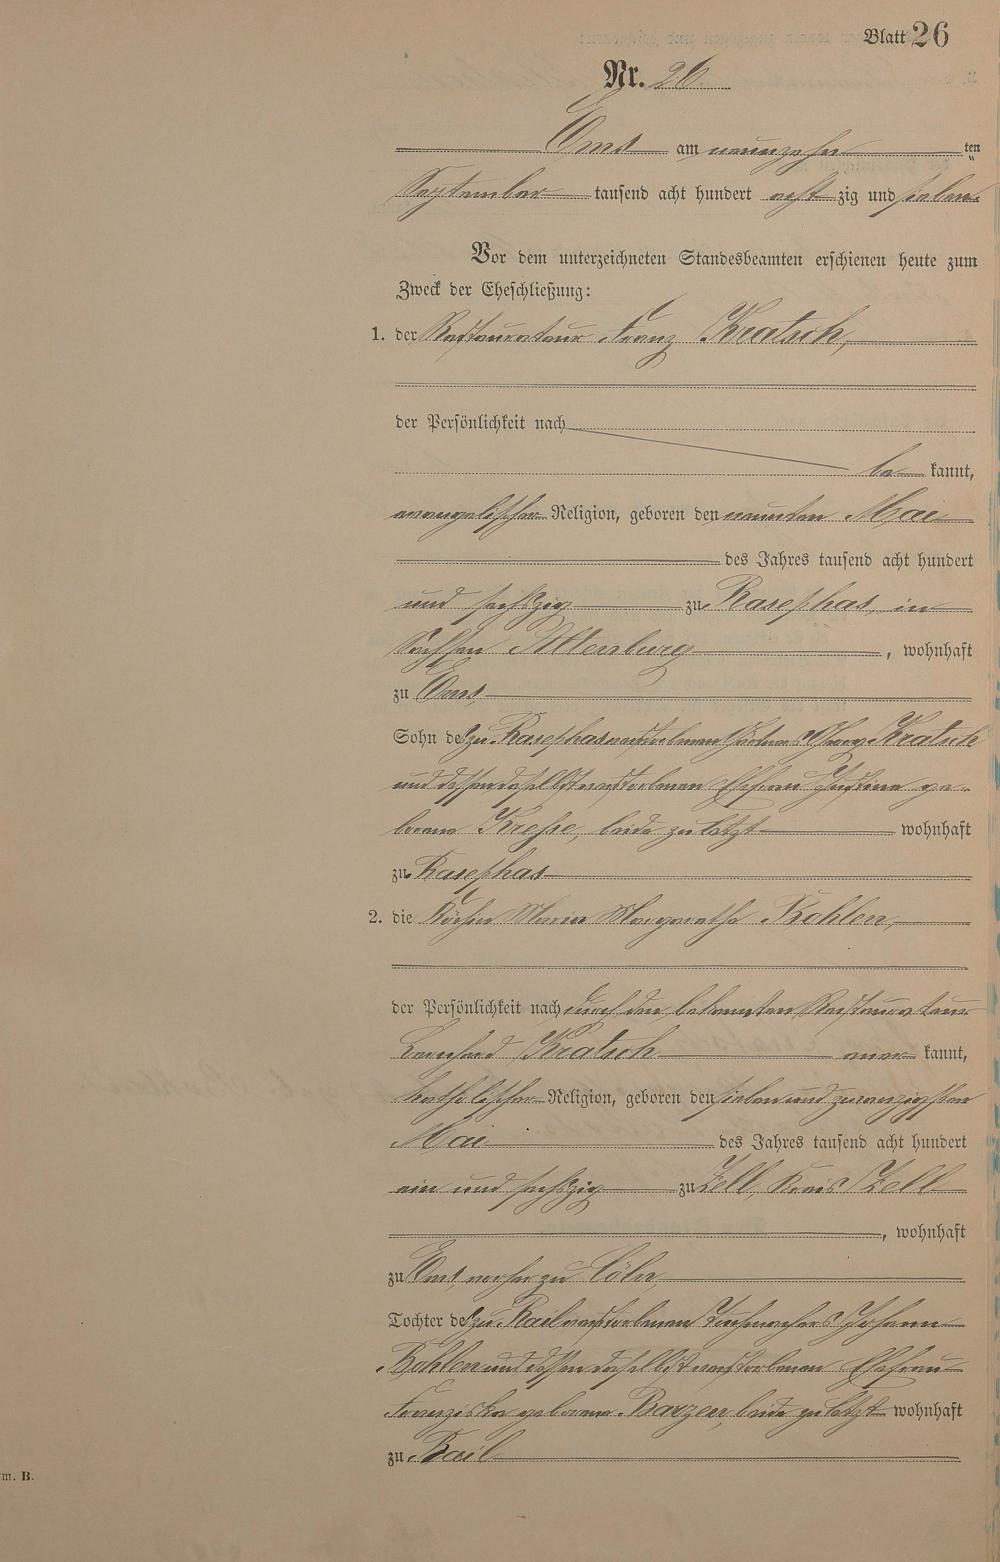 Blatt 26
Nr. 26.
Ems am neunzehnten
September tausend acht hundert achtzig und sieben
Vor dem unterzeichneten Standesbeamten erschienen heute zum
Zweck der Eheschließung:
1. der Restaurateur Franz Kratsch,
der Persönlichkeit nach
bekannt,
evangelischer Religion, geboren den neunten Mai
des Jahres tausend acht hundert
und sechszig zu Rasephas, in
Sachsen Altenburg, wohnhaft
zu Ems,
Sohn des zu Rasephas verstorbenen Kratsch
und dessen daselbst verstorbenen Ehefrau Justine ge-
borene Kresse, beide zuletzt wohnhaft
zu Rasephas
2. die Köchin Maria Margaretha Kohlen,
der Persönlichkeit nach durch den bekannten Restaurateur
Bernhard Kratsch anerkannt,
katholischer Religion, geboren den sieben und zwanzigsten
Mai des Jahres tausend acht hundert
ein und sechszig zu Zell, Kreis Zell
, wohnhaft
zu Ems, vorher zu Cöln,
Tochter des zu Kail verstorbenen Tuchmachers Johann
Kohlen und dessen daselbst verstorbenen Ehefrau
Franziska geborene Barzen, beide zuletzt wohnhaft
zu Kail
m. B.